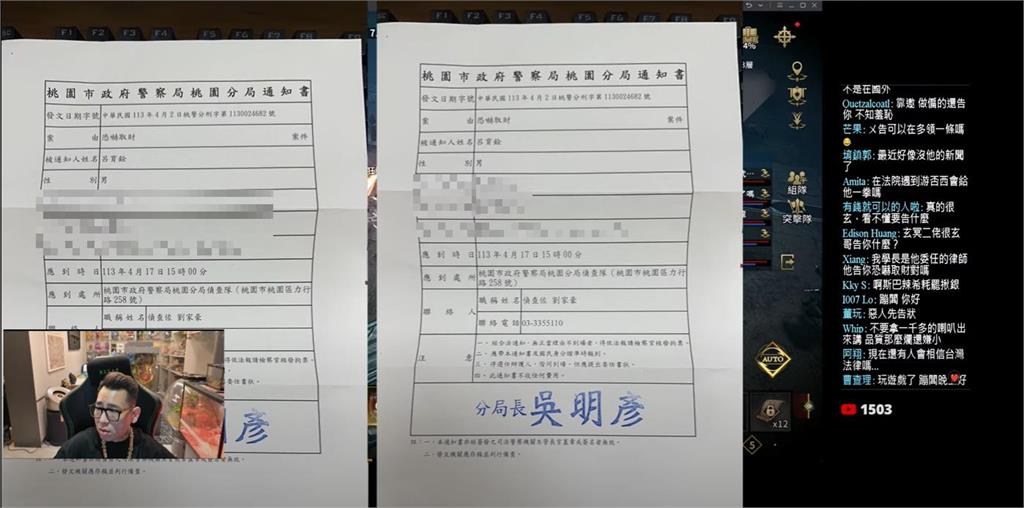 F1 F2 F3 F4
桃園市政府警察局桃園分局通知書
發文日期字號 中華民國113年4月2日桃警分刑字第1130024682號
案由 恐嚇取財 案件
被通知人姓名 呂育銓
性別 男
應到時日 113年4月17日15時00分
應到處所 桃園市政府警察局桃園分局偵查隊(桃園市桃園區力行路258號)
職稱姓名 偵查佐 劉家豪
得依法報請檢察官核發拘票。
委任書狀。
明彥
二、發文機關應存稿並列行備查。
F1 F2 F3 F4 F5 F6 F7 F8
桃園市政府警察局桃園分局通知書
發文日期字號 中華民國113年4月2日桃警分刑字第1130024682號
案由 恐嚇取財 案件
被通知人姓名 呂育銓
性別 男
應到時日 113年4月17日15時00分
應到處所 桃園市政府警察局桃園分局偵查隊(桃園市桃園區力行
路258號)
聯絡人
職稱姓名 偵查佐 劉家豪
聯絡電話 03-3355110
注意
一、經合法通知,無正當理由不到場者,得依法報請檢察官核發拘票。
二、應帶本通知書及國民身分證準時報到。
三、得選任辯護人,偕同到場,但應提出委任書狀。
四、此通知書不收任何費用。
分局長 吳明彥
二、發文機關應存稿並列行備查。
4%
組隊
突擊隊
AUTO
x12
5
不是在國外
Quetzalcoatl: 靠邀 做偏的還告
你 不知羞恥
芒果: ㄨ告可以在多領一條嗎
最近好像沒他的新聞
了
Amita: 在法院遇到游否西會給
他一拳嗎
有錢就可以的人啦: 真的很
玄,看不懂要告什麼
Edison Huang: 玄冥二佬很玄
哥告你什麼?
Xiang: 我學長是他委任的律師
他告你恐嚇取財對嗎
Kky S: 啊斯巴辣希耗罷揪銀
I007 Lo: 蹦闆 你好
董玩: 惡人先告狀
Whip: 不要拿一千多的喇叭出
來講 品質那麼爛還嫌小
阿翔: 現在還有人會相信台灣
法律嗎...
曹查理: 玩遊戲了 蹦闆晚上好
1503